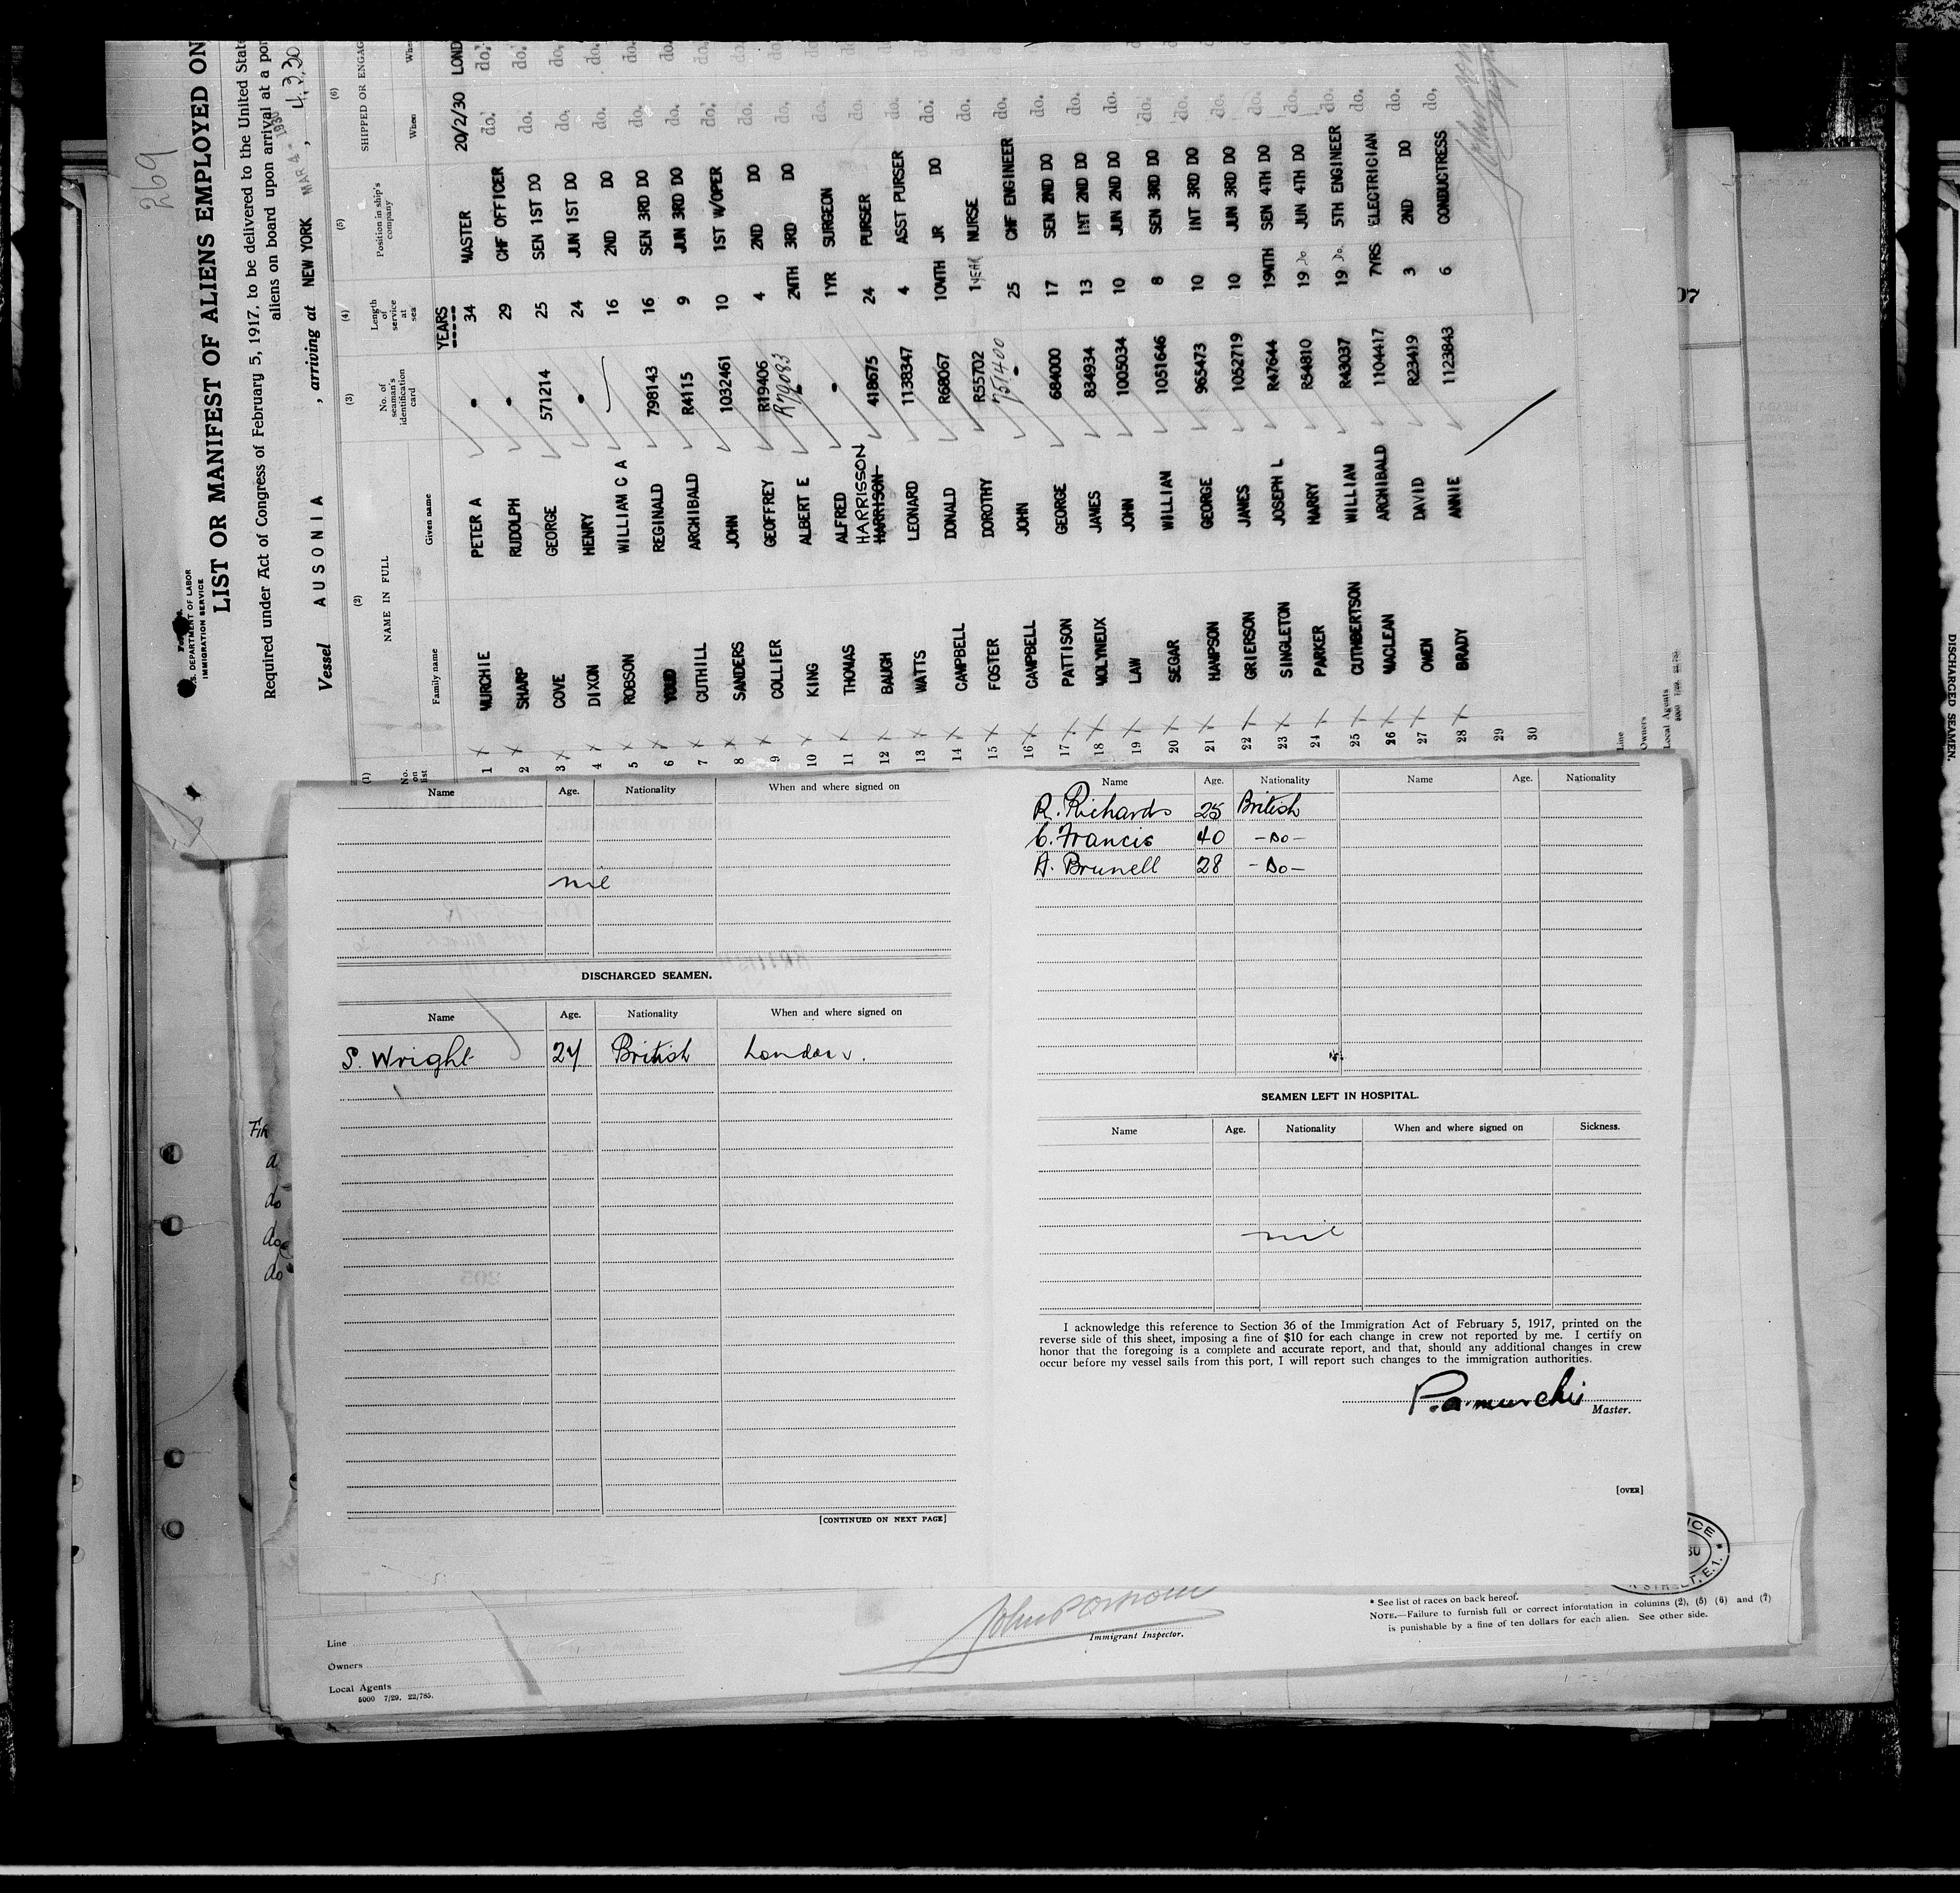 269
U.S. DEPARTMENT OF LABOR
IMMIGRATION SERVICE
LIST OR MANIFEST OF ALIENS EMPLOYED ON
Required under Act of Congress of February 5, 1917, to be delivered to the United State
aliens on board upon arrival at a por
Vessel AUSONIA , arriving at NEW YORK MAR 4 - 1930 , 4.3.30
(1) (2) (3) (4) (5) (6)
No. on list NAME IN FULL No. of seaman's identification card Length of service at sea Position in ship's company SHIPPED OR ENGAG
Family name Given name When Whe
YEARS
1 MURCHIE PETER A 34 MASTER 20/2/30 LOND
2 SHARP RUDOLPH 29 CHF OFFICER do. do.
3 COVE GEORGE 571214 25 SEN 1ST DO do. do.
4 DIXON HENRY 24 JUN 1ST DO do. do.
5 ROBSON WILLIAM C A 16 2ND DO do. do.
6 YOUD REGINALD 798143 16 SEN 3RD DO do. do.
7 CUTHILL ARCHIBALD R4115 9 JUN 3RD DO do. do.
8 SANDERS JOHN 1032461 10 1ST W/OPER do. do.
9 COLLIER GEOFFREY R19406 4 2ND DO do. do.
10 KING ALBERT E R79083 2MTH 3RD DO do. do.
11 THOMAS ALFRED 1YR SURGEON do. do.
12 BAUGH HARRISSON HARRISON 418675 24 PURSER do. do.
13 WATTS LEONARD 1138347 4 ASST PURSER do. do.
14 CAMPBELL DONALD R68067 10MTH JR DO do. do.
15 FOSTER DOROTHY R55702 1 YEAR NURSE do. do.
16 CAMPBELL JOHN 751400 25 CHF ENGINEER do. do.
17 PATTISON GEORGE 684000 17 SEN 2ND DO do. do.
18 MOLYNEUX JAMES 834934 13 INT 2ND DO do. do.
19 LAW JOHN 1005034 10 JUN 2ND DO do. do.
20 SEGAR WILLIAM 1051646 8 SEN 3RD DO do. do.
21 HAMPSON GEORGE 965473 10 INT 3RD DO do. do.
22 GRIERSON JAMES 1052719 10 JUN 3RD DO do. do.
23 SINGLETON JOSEPH L R47644 19MTH SEN 4TH DO do. do.
24 PARKER HARRY R54810 19 Do JUN 4TH DO do. do.
25 CUTHBERTSON WILLIAM R43037 19 Do. 5TH ENGINEER do. do.
26 MACLEAN ARCHIBALD 1104417 7YRS ELECTRICIAN do. do.
27 OWEN DAVID R23419 3 2ND DO do. do.
28 BRADY ANNIE 1123843 6 CONDUCTRESS do. do.
29
30
Line
Owners
Local Agents
Name Age. Nationality When and where signed on
nil
DISCHARGED SEAMEN.
Name Age. Nationality When and where signed on
S. Wright 24 British London.
[CONTINUED ON NEXT PAGE]
Name Age. Nationality Name Age. Nationality
R. Richards 25 British
C. Francis 40 -Do-
A. Brunell 28 -Do-
SEAMEN LEFT IN HOSPITAL.
Name Age. Nationality When and where signed on Sickness.
nil
I acknowledge this reference to Section 36 of the Immigration Act of February 5, 1917, printed on the
reverse side of this sheet, imposing a fine of $10 for each change in crew not reported by me. I certify on
honor that the foregoing is a complete and accurate report, and that, should any additional changes in crew
occur before my vessel sails from this port, I will report such changes to the immigration authorities.
P. A. Murchie
Master.
[OVER]
do
do
do
Immigrant Inspector.
Line
Owners
Local Agents
5000 7/29. 22/785.
* See list of races on back hereof.
NOTE.—Failure to furnish full or correct information in columns (2), (5) (6) and (7)
is punishable by a fine of ten dollars for each alien. See other side.
DISCHARGED SEAMEN.